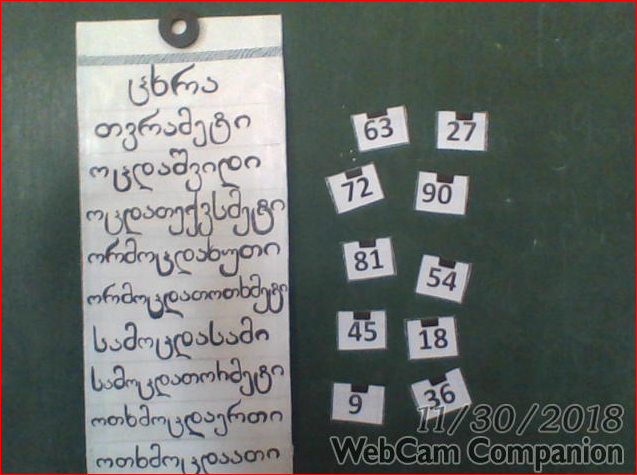 ცხრა
თვრამეტი
ოცდაშვიდი
ოცდათექვსმეტი
ორმოცდახუთი
ორმოცდათოთხმეტი
სამოცდასამი
სამოცდათორმეტი
ოთხმოცდაერთი
ოთხმოცდაათი
63 27
72 90
81 54
45 18
9 36
11/30/2018
WebCam Companion